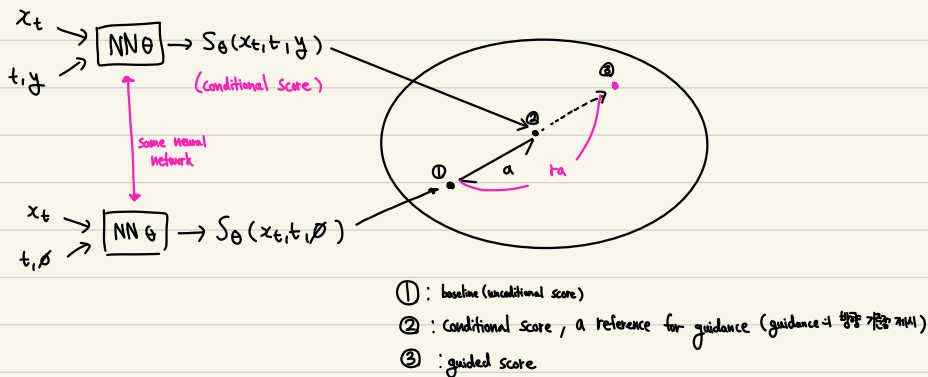 x_t
NNθ → S_θ(x_t, t, y)
t, y
(conditional score)
same neural
network
③
②
a
ra
①
x_t
NNθ → S_θ(x_t, t, ∅)
t, ∅
① : baseline (uncoditional score)
② : conditional score, a reference for guidance (guidance의 방향 기준 제시)
③ : guided score